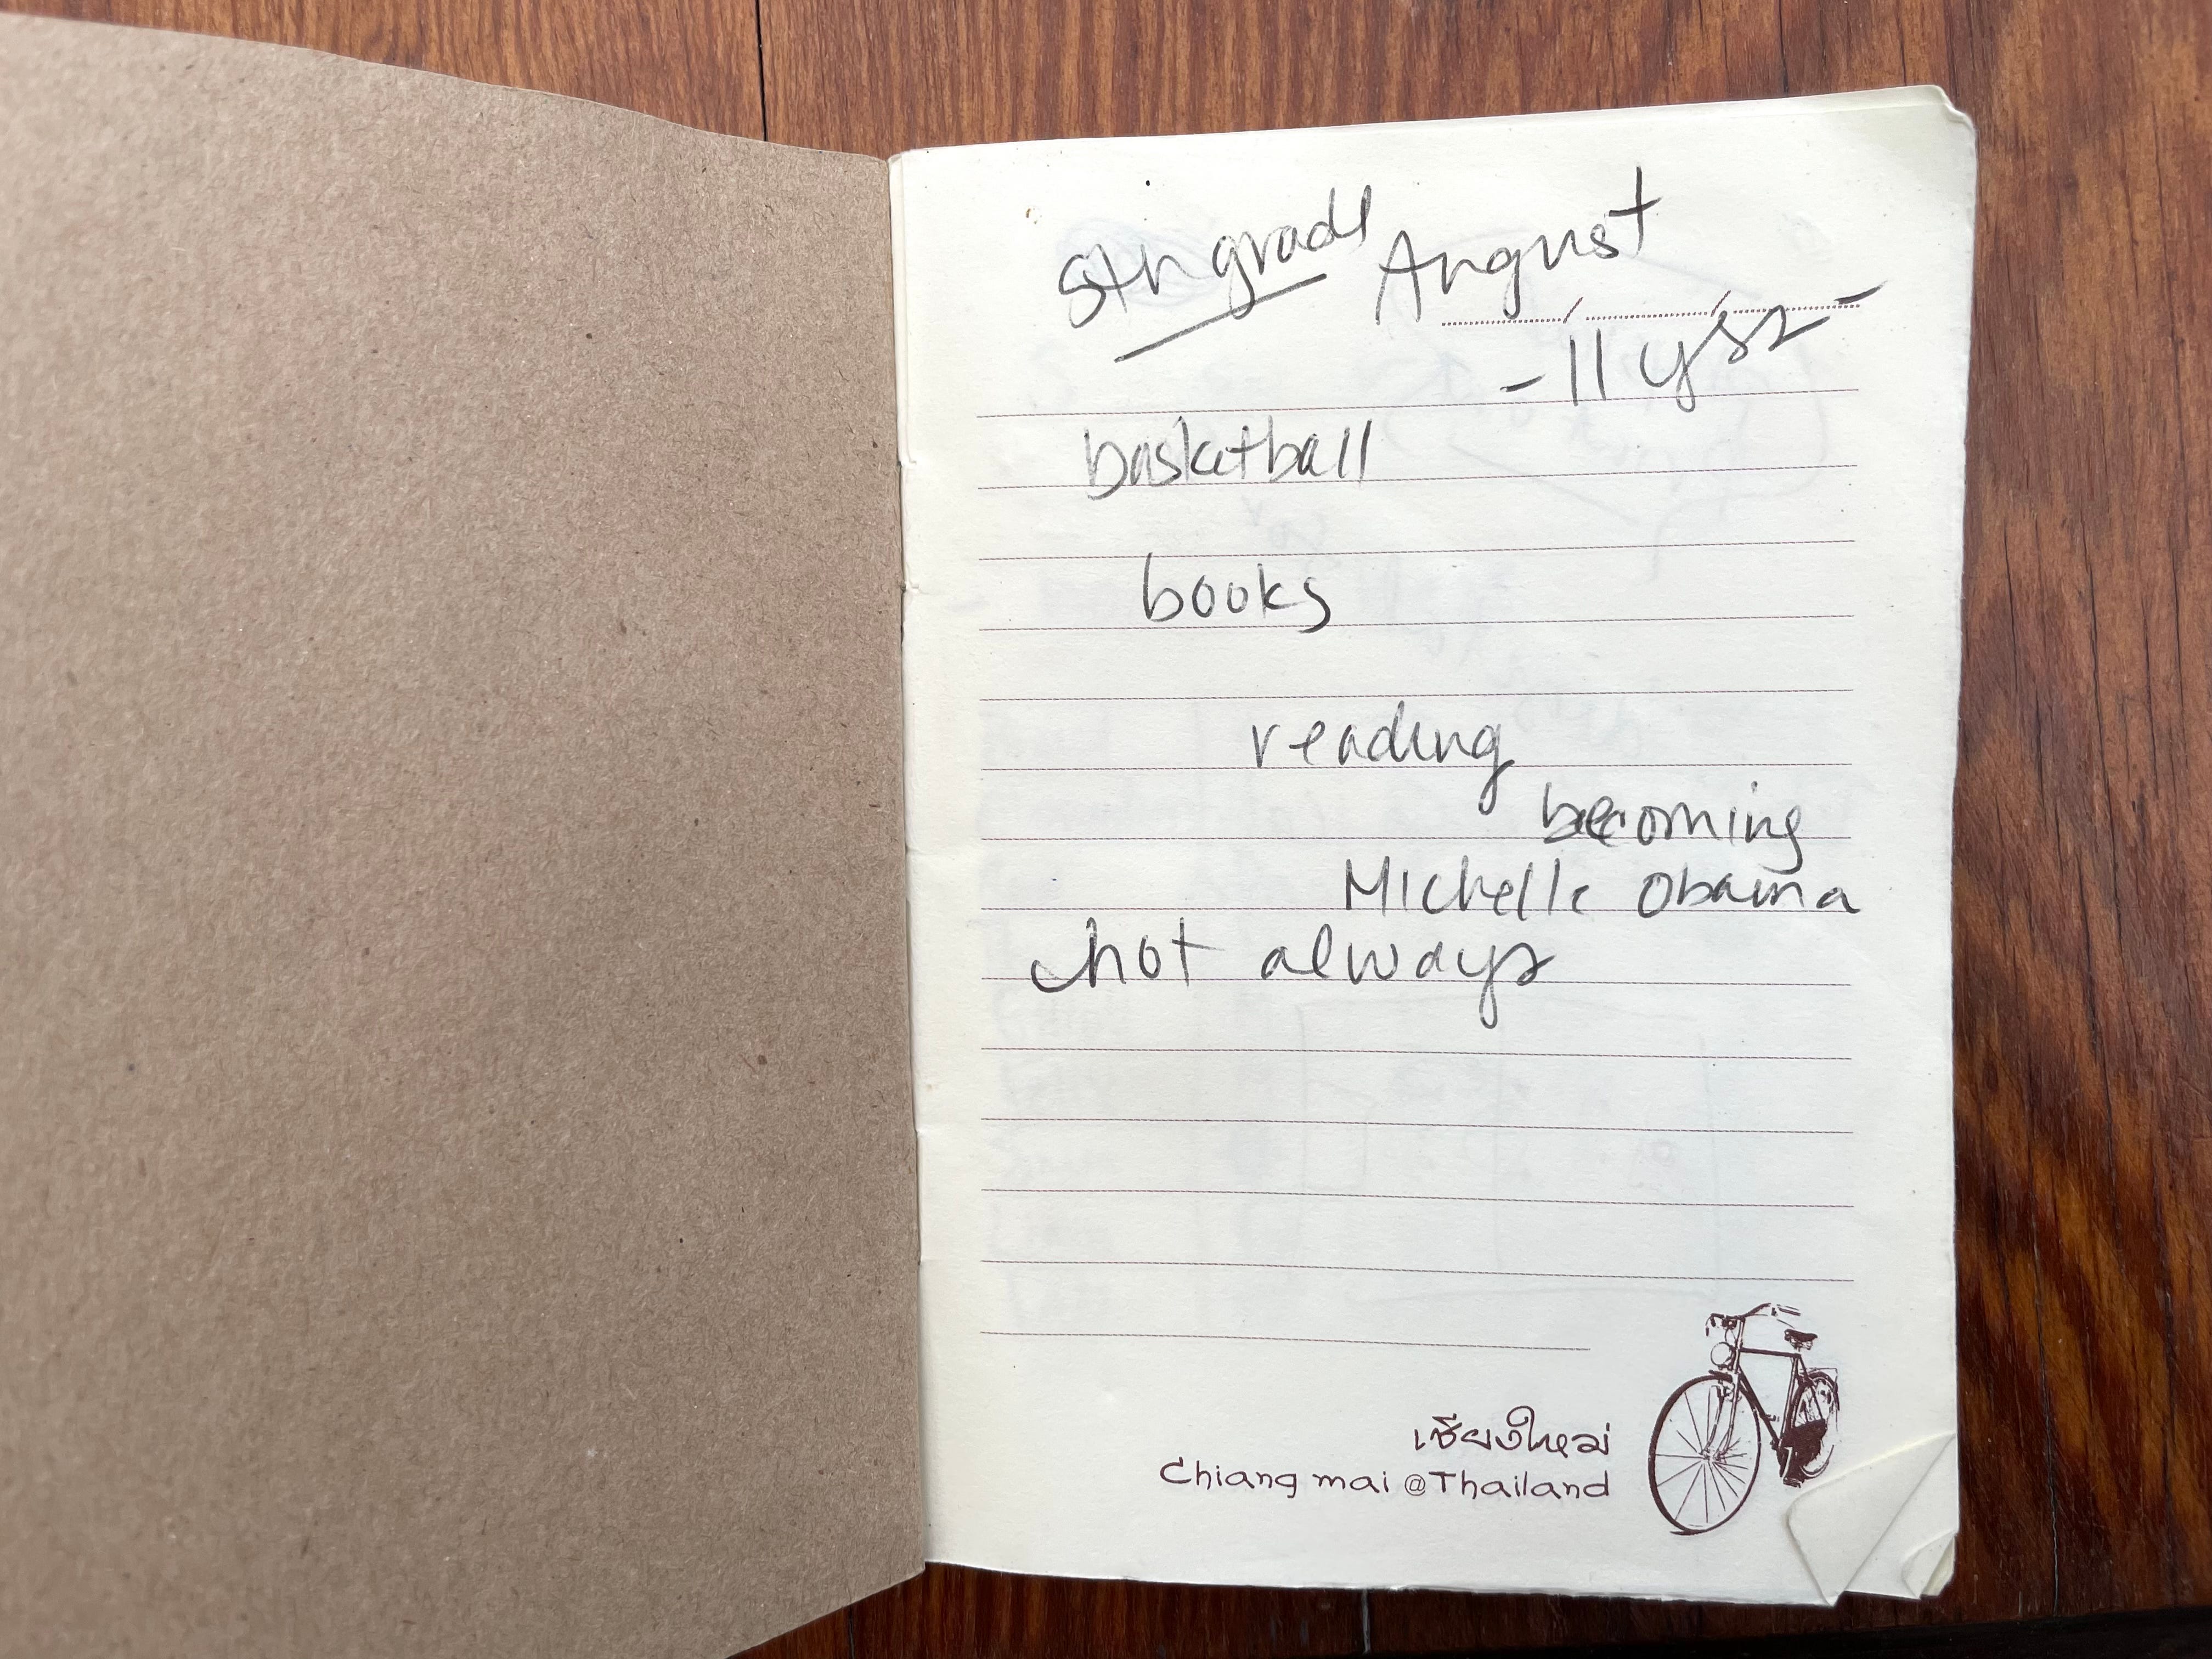 5th grade August
- 11 yrs -
basketball
books
reading
becoming
Michelle Obama
not always
เชียงใหม่
Chiang mai @Thailand